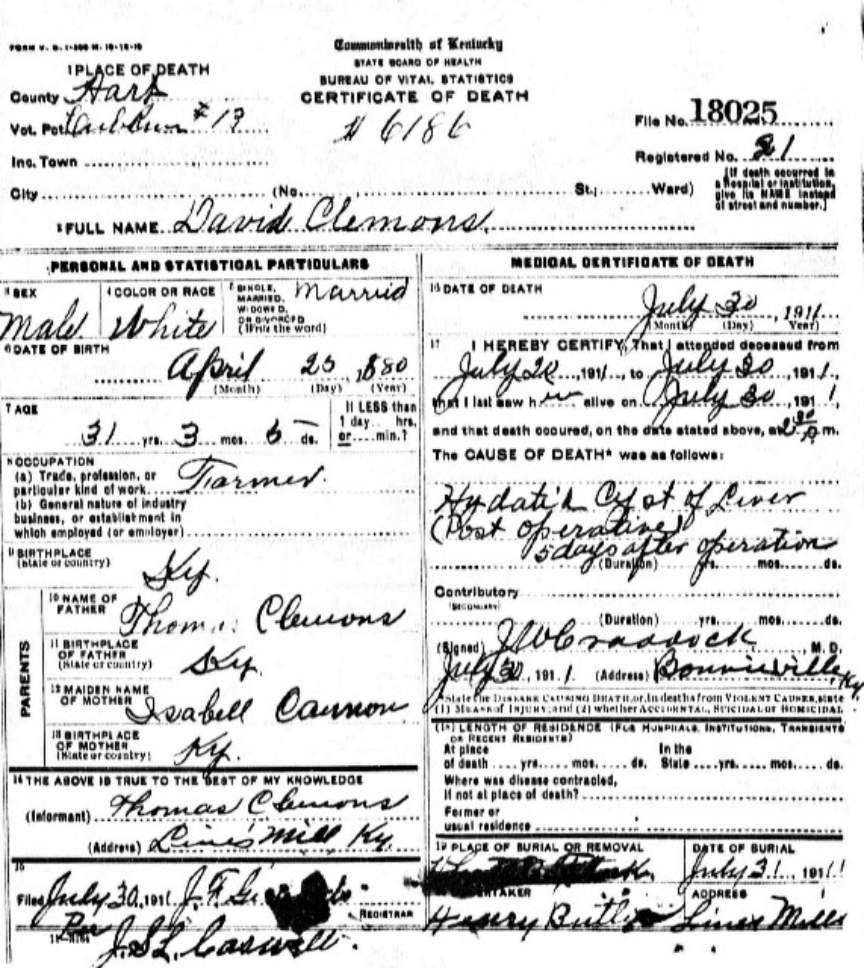 Commonwealth of Kentucky
STATE BOARD OF HEALTH
BUREAU OF VITAL STATISTICS
CERTIFICATE OF DEATH
# 6186
1 PLACE OF DEATH
County Hart
Vot. Pct. #13
Inc. Town
City (No. St.; Ward)
File No. 18025
Registered No. 21
[If death occurred in a Hospital or institution, give its NAME instead of street and number.]
2 FULL NAME David Clemons
PERSONAL AND STATISTICAL PARTICULARS
3 SEX
Male
4 COLOR OR RACE
White
5 SINGLE, MARRIED, WIDOWED, OR DIVORCED (Write the word)
Married
6 DATE OF BIRTH
April 25, 1880
(Month) (Day) (Year)
7 AGE
31 yrs. 3 mos. 5 ds.
If LESS than 1 day hrs. or min.?
8 OCCUPATION
(a) Trade, profession, or
particular kind of work Farmer
(b) General nature of industry
business, or establishment in
which employed (or employer)
9 BIRTHPLACE
(State or country)
Ky.
PARENTS
10 NAME OF FATHER
Thomas Clemons
11 BIRTHPLACE OF FATHER
(State or country)
Ky.
12 MAIDEN NAME OF MOTHER
Isabell Cannon
13 BIRTHPLACE OF MOTHER
(State or country)
Ky.
14 THE ABOVE IS TRUE TO THE BEST OF MY KNOWLEDGE
(Informant) Thomas Clemons
(Address) Lines Mill, Ky.
15
Filed July 30, 1911 J. F.
REGISTRAR
Per J.S.L. Caswell.
MEDICAL CERTIFICATE OF DEATH
16 DATE OF DEATH
July 30, 1911
(Month) (Day) (Year)
17 I HEREBY CERTIFY, That I attended deceased from
July 20, 1911, to July 30, 1911,
that I last saw him alive on July 30, 1911,
and that death occured, on the date stated above, at m.
The CAUSE OF DEATH* was as follows:
Hydatid Cyst of Liver
(Post operative)
5 days after operation
(Duration) yrs. mos. ds.
Contributory
(SECONDARY)
(Duration) yrs. mos. ds.
(Signed) J W Craddock, M.D.
July 30, 1911 (Address) Bonnieville, Ky
*State the DISEASE CAUSING DEATH, or, in deaths from VIOLENT CAUSES, state
(1) MEANS OF INJURY; and (2) whether ACCIDENTAL, SUICIDAL or HOMICIDAL
(18) LENGTH OF RESIDENCE (FOR HOSPITALS, INSTITUTIONS, TRANSIENTS
OR RECENT RESIDENTS)
At place of death yrs. mos. ds. In the State yrs. mos. ds.
Where was disease contracted,
If not at place of death?
Former or
usual residence
19 PLACE OF BURIAL OR REMOVAL
DATE OF BURIAL
July 31, 1911
Henry Butler
ADDRESS
Lines Mills